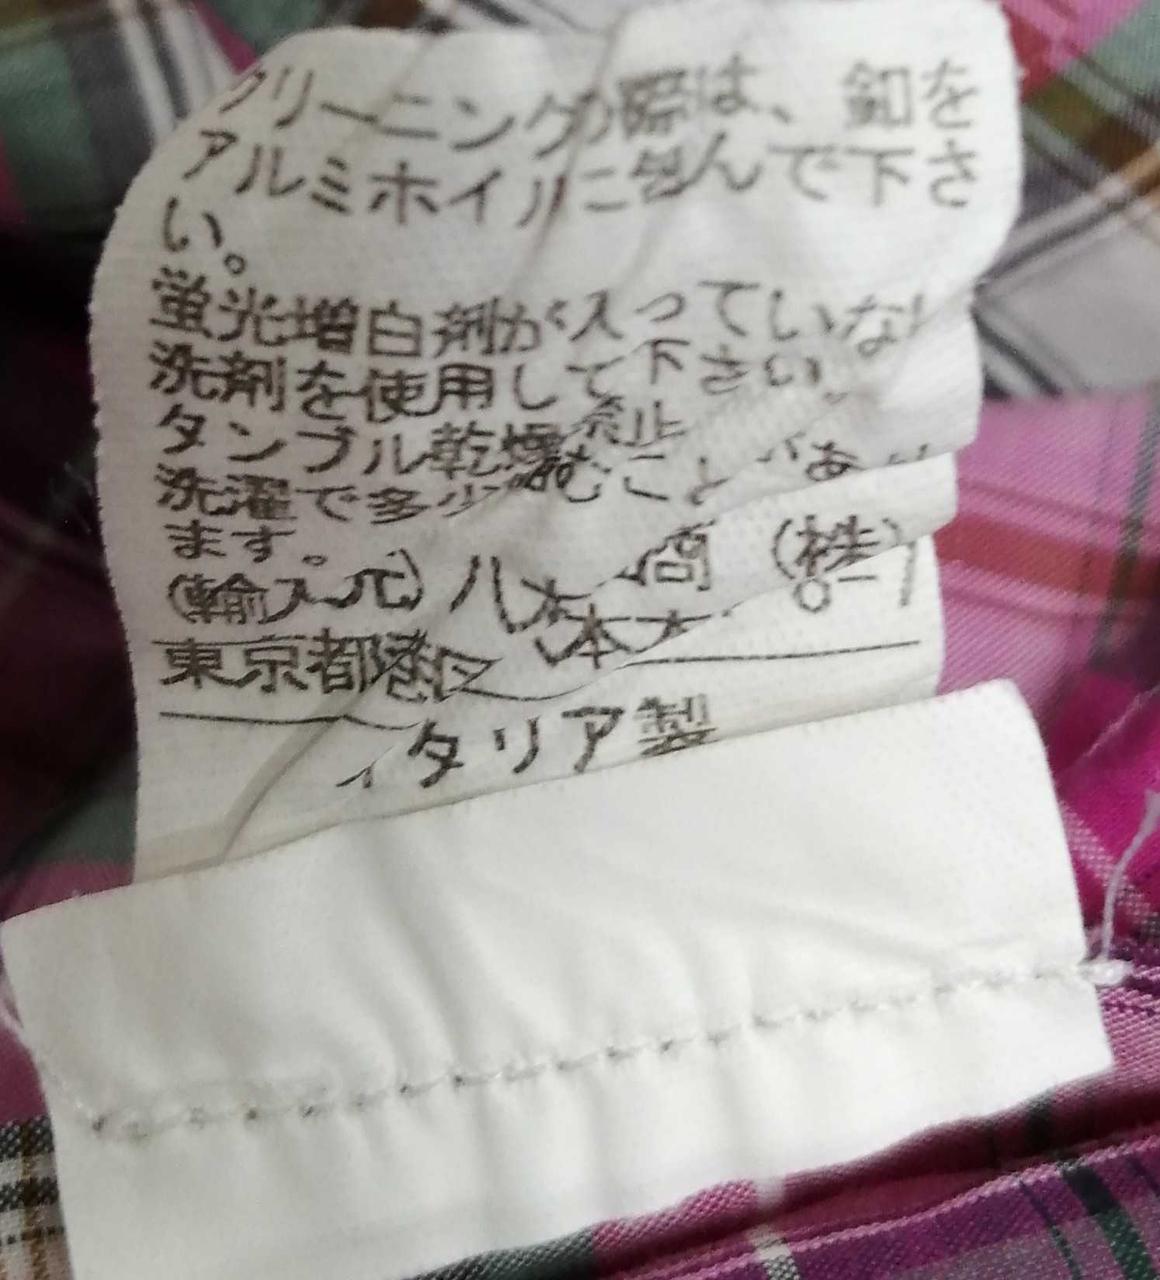 クリーニングの際は、釦を
アルミホイルに包んで下さ
い。
蛍光増白剤が入っていない
洗剤を使用して下さい
タンブル乾燥禁止
洗濯で多少縮むことがあり
ます。
(輸入元) 八木 商 (株)
東京都港区 本木
イタリア製